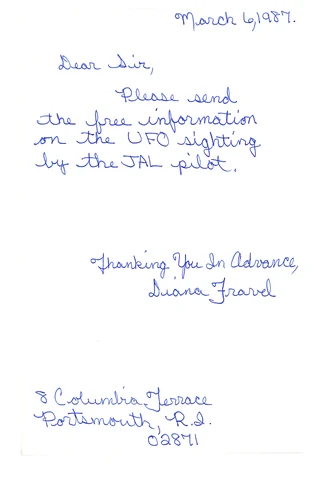 March 6, 1987.
Dear Sir,
Please send
the free information
on the UFO sighting
by the JAL pilot.
Thanking You In Advance,
Diana Fravel
8 Columbia Terrace
Portsmouth, R.I.
02871